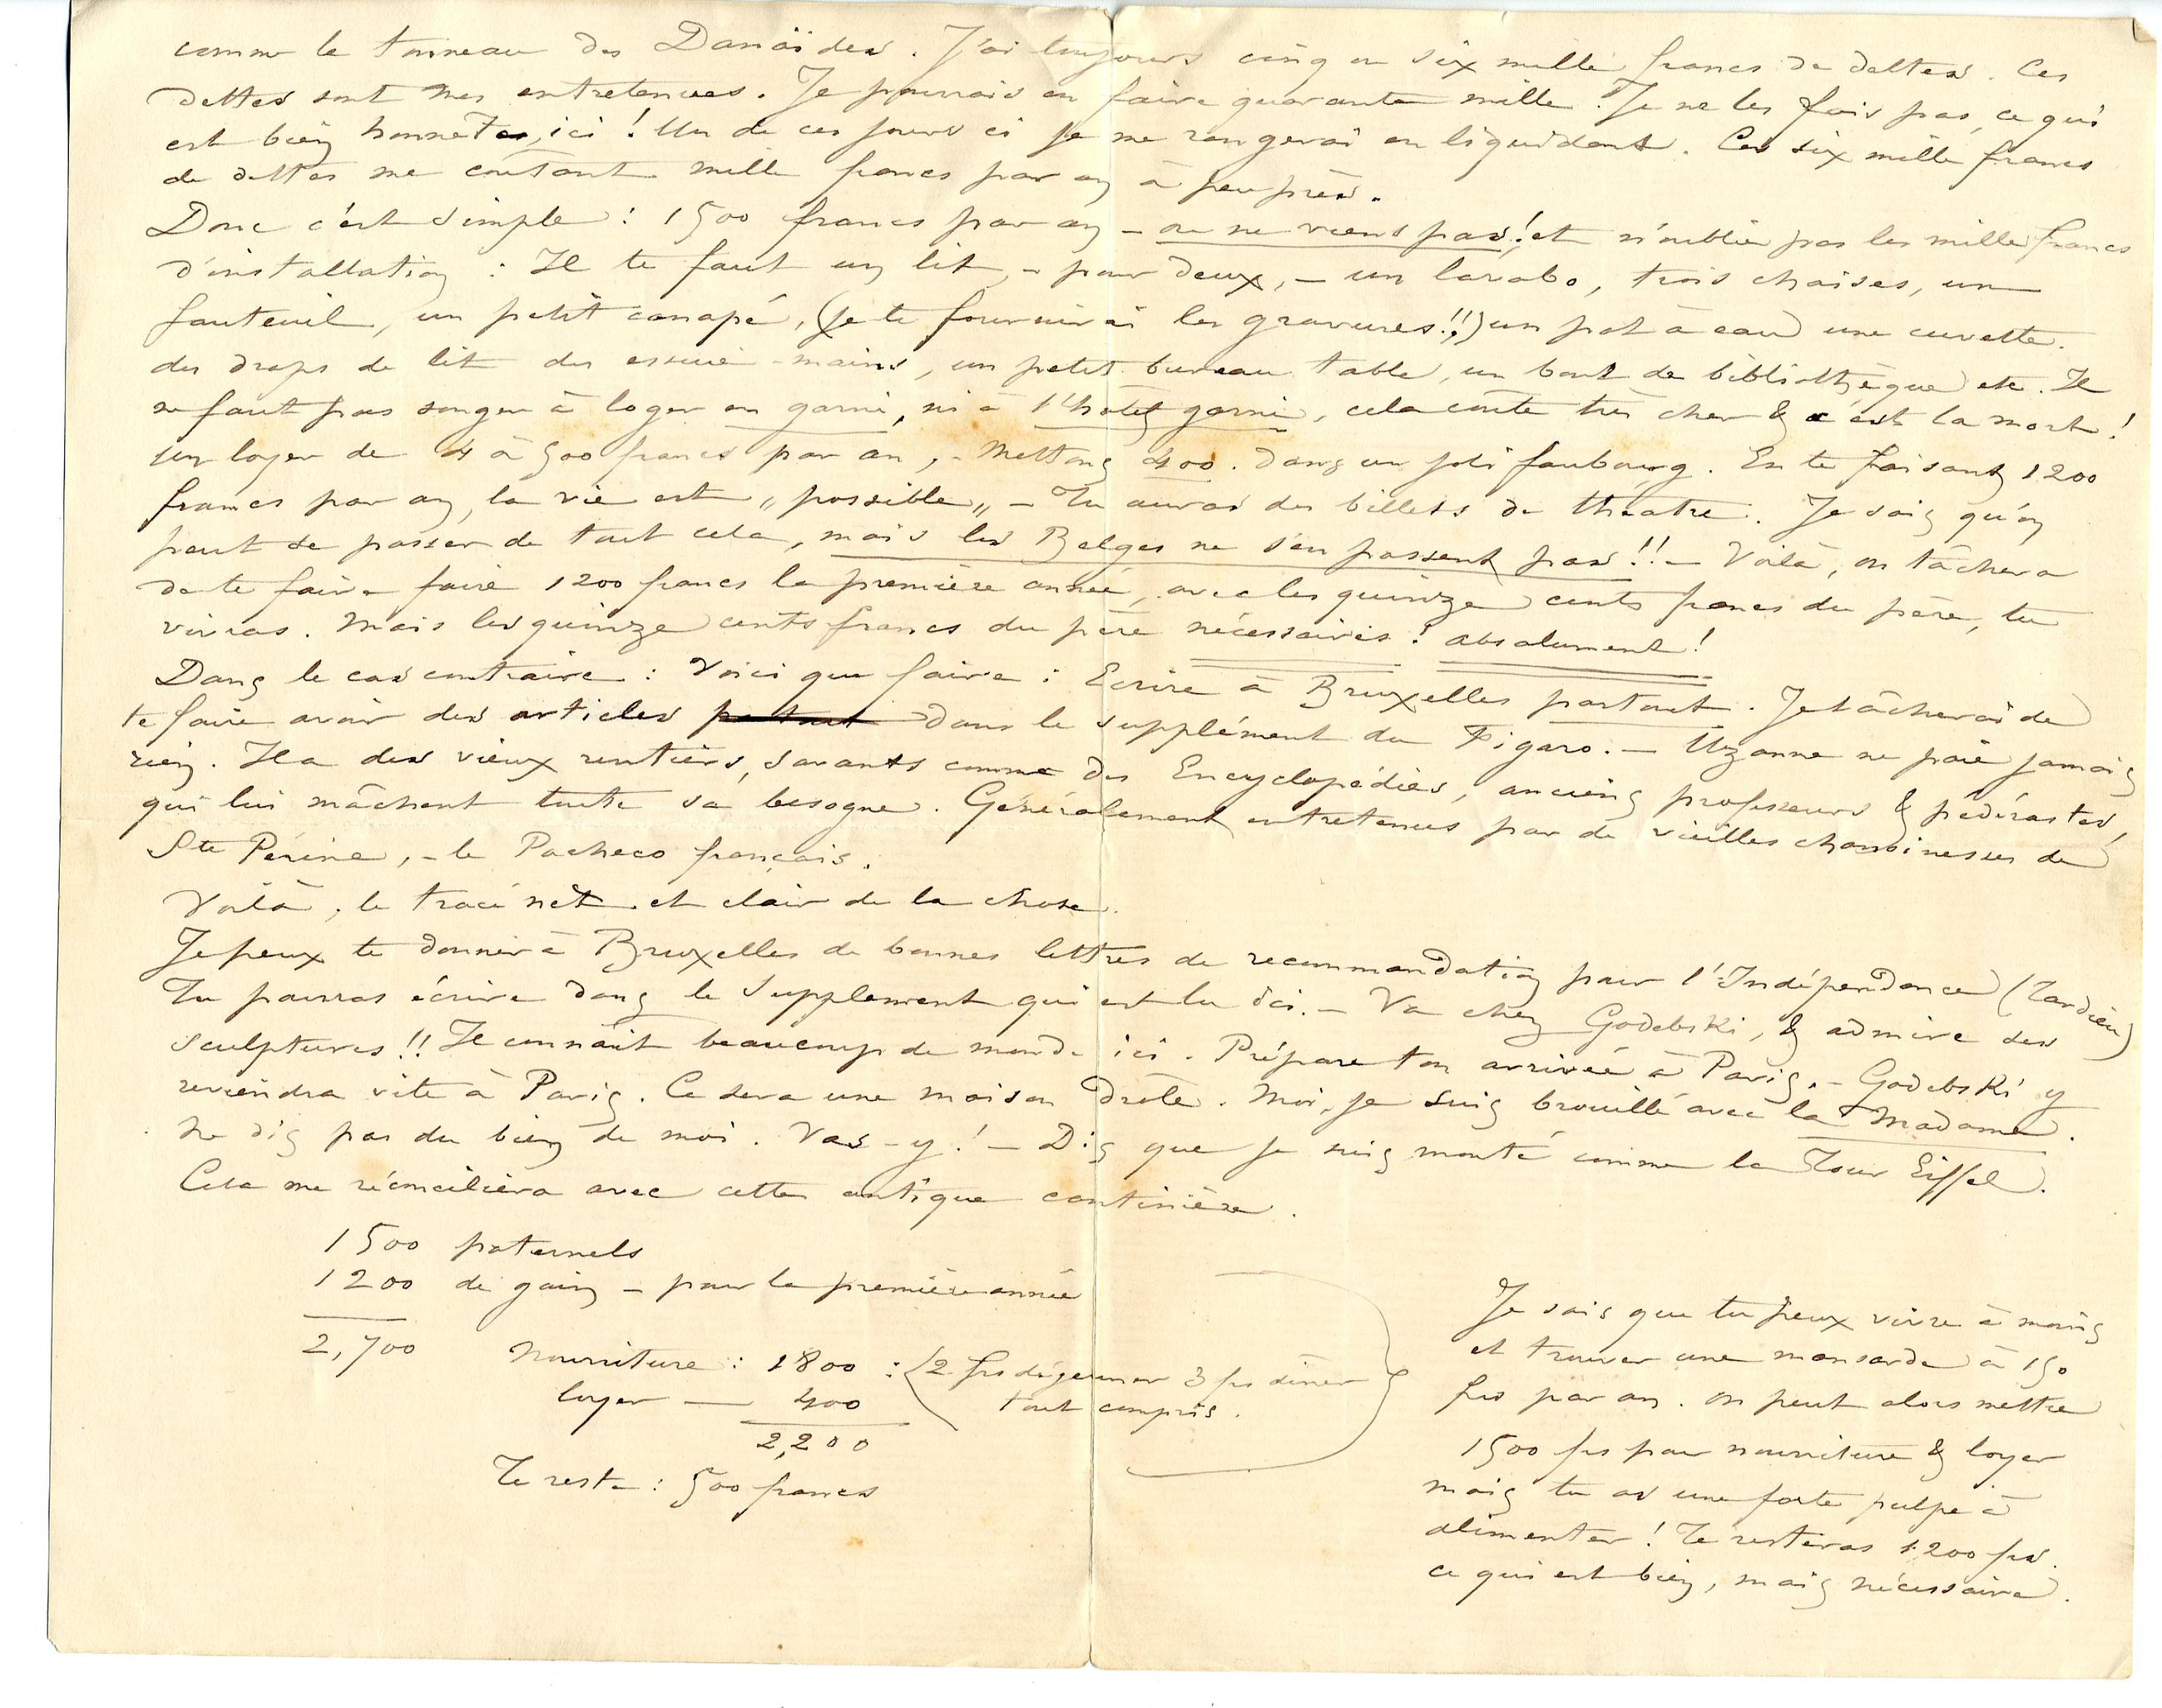 comme le tonneau des Danaïdes. J'ai toujours cinq ou six mille francs de dettes. Ces
dettes sont mes entretenues. Je pourrais en faire quarante mille. Je ne les fais pas, ce qui
est bien honnête, ici ! Un de ces jours ci je me rangerai en liquidant. Ces six mille francs
de dettes me coûtant mille francs par an à peu près.
Donc c'est simple : 1500 francs par an – ou ne viens pas ! et n'oublie pas les mille francs
d'installation : Il te faut un lit, – pour deux, – un lavabo, trois chaises, un
fauteuil, un petit canapé, (je te fournirai les gravures !!) un pot à eau une cuvette.
des draps de lit des essuie-mains, un petit bureau table, un bout de bibliothèque etc. Il
ne faut pas songer à loger en garni, ni à l'hôtel garni, cela coute très cher & c'est la mort !
un loyer de 4 à 500 francs par an, – Mettons 400. dans un joli faubourg. En te faisant 1200
francs par an, la vie est „possible„ – Tu auras des billets de théatre. Je sais qu'on
peut se passer de tout cela, mais les Belges ne s'en passent pas !! – Voilà, on tâchera
de te faire faire 1200 francs la première année, avec les quinze cents francs du père, tu
vivras. Mais les quinze cents francs du père nécessaires ! absolument !
Dans le cas contraire : Voici que faire : Ecrire à Bruxelles partout. Je tâcherai de
te faire avoir des articles partout dans le supplément du Figaro. – Uzanne ne paie jamais
rien. Il a des vieux rentiers, savants comme des Encyclopédies, anciens professeurs & pédérastes,
qui lui mâchent toute sa besogne. Généralement entretenus par de vieilles chanoinesses de
Ste Périne, – le Pacheco français.
Voilà, le tracé net et clair de la chose.
Je peux te donner à Bruxelles de bonnes lettres de recommandation pour l'Indépendance (Tardieu)
Tu pourras écrire dans le Supplement qui est lu ici. – Va chez Godebski, & admire ses
sculptures !! Il connait beaucoup de monde ici. Prépare ton arrivée à Paris. – Godebski y
reviendra vite à Paris. Ce sera une maison drôle. Moi, je suis brouillé avec la Madame.
Ne dis pas du bien de moi. Vas-y ! – Dis que je suis monté comme la Tour Eiffel.
Cela me réconciliera avec cette antique cantinière.
1500 paternels
1200 de gain – pour la première année
2,700
Nourriture : 1800 : (2 frs dégeuner 3 frs diner
loyer — 400 tout compris.
2,200
Te reste : 500 francs
Je sais que tu peux vivre à moins
et trouver une mansarde à 150
frs par an. On peut alors mettre
1500 frs pour nourriture & loyer
mais tu as une forte pulpe à
alimenter ! Te resteras 1200 frs.
ce qui est bien, mais nécessaire.